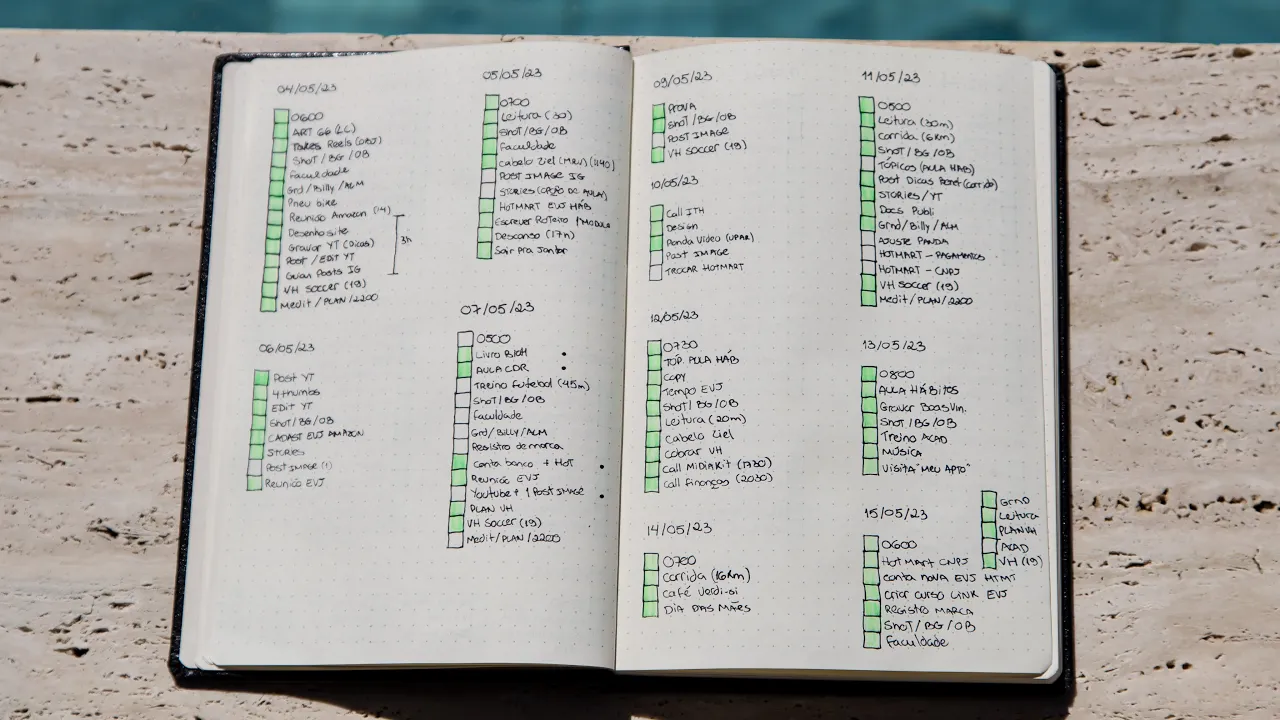 04/05/23
0600
ART 66 (LC)
Takes Reels (OBJ)
SHOT / BG / OB
Faculdade
Grd/Billy/ALM
Pneu bike
Reunião Amazon (14)
Desenho site
Gravar YT (Dicas)
Post / EDIT YT
Guian Posts IG
VH Soccer (19)
Medit/PLAN/2200
3h
05/05/23
0700
Leitura (30)
SHOT/BG/OB
Faculdade
Cabelo Ziel (MRV) (1140)
POST IMAGE IG
STORIES (OPÇÃO DE AULA)
HOTMART EVJ HÁB
Escrever Roteiro 1 Modulo
Descanso (17h)
Sair Pra Jantar
06/05/23
Post YT
4 thumbs
EDIT YT
SHOT/BG/OB
CADAST EVJ AMAZON
STORIES
Post IMAGE (1)
Reunião EVJ
07/05/23
0500
Livro B1OH
AULA CDR
Treino Futebol (45m)
SHOT/BG/OB
Faculdade
Grd/BILLY/ALM
Registro de marca
Conta banco + HOT
Reunião EVJ
Youtube + 1 Post IMAGE
PLAN VH
VH Soccer (19)
Medit/PLAN/2200
09/05/23
PROVA
SHOT/BG/OB
POST IMAGE
VH SOCCER (19)
10/05/23
Call JTH
Design
Panda Video (UPAR)
Post IMAGE
TROCAR HOTMART
12/05/23
0730
TOP. AULA HÁB
Copy
Tempo EVJ
SHOT/BG/OB
Leitura (20m)
Cabelo Ziel
Cobrar VH
Call MIDIAKIT (1730)
Call Finanças (2030)
14/05/23
0700
Corrida (16Km)
Café Verdi-si
DIA DAS MÃES
11/05/23
0500
Leitura (30m)
Corrida (6Km)
SHOT/BG/OB
TÓPICOS (AULA HÁB)
Post Dicas Boné (Corrida)
STORIES/YT
Docs Publi
Grnd/Billy/ALM
AJUSTE PANDA
HOTMART - PAGAMENTOS
HOTMART - CNPJ
VH Soccer (19)
Medit/PLAN/2200
13/05/23
0800
AULA HÁBITOS
Gravar BoasVin.
SHOT/BG/OB
Treino ACAD
MÚSICA
VISITA "MEU APTO"
15/05/23
0600
HOTMART CNPJ
Conta NOVA EVJ HTMT
Criar CURSO LINK EVJ
REGISTRO MARCA
SHOT/BG/OB
Faculdade
GRND
Leitura
PLAN VH
ACAD
VH (19)